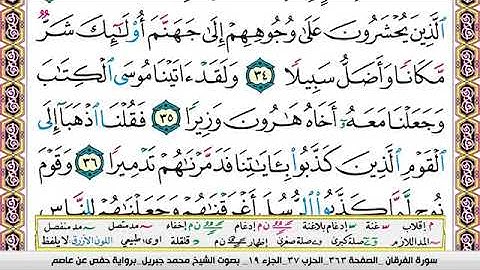 ٱلَّذِينَ يُحْشَرُونَ عَلَىٰ وُجُوهِهِمْ إِلَىٰ جَهَنَّمَ أُو۟لَٰٓئِكَ شَرٌّ
مَّكَانًا وَأَضَلُّ سَبِيلًا ٣٤ وَلَقَدْ ءَاتَيْنَا مُوسَى ٱلْكِتَٰبَ
وَجَعَلْنَا مَعَهُۥٓ أَخَاهُ هَٰرُونَ وَزِيرًا ٣٥ فَقُلْنَا ٱذْهَبَآ إِلَى
ٱلْقَوْمِ ٱلَّذِينَ كَذَّبُوا۟ بِـَٔايَٰتِنَا فَدَمَّرْنَٰهُمْ تَدْمِيرًا ٣٦ وَقَوْمَ
نُوحٍ لَّمَّا كَذَّبُوا۟ ٱلرُّسُلَ أَغْرَقْنَٰهُمْ وَجَعَلْنَٰهُمْ لِلنَّاسِ
م إقلاب غنة إدغام بلاغنة ن م إدغام ن م إخفاء مد متصل مد منفصل
المد اللازم صلة كبرى صلة صغرى إظهار ن م قلقلة طبيعي اللون الأزرق لا يلفظ
سورة الفرقان _الصفحة ٣٦٣_ الحزب ٣٧_ الجزء ١٩_ بصوت الشيخ محمد جبريل_ برواية حفص عن عاصم